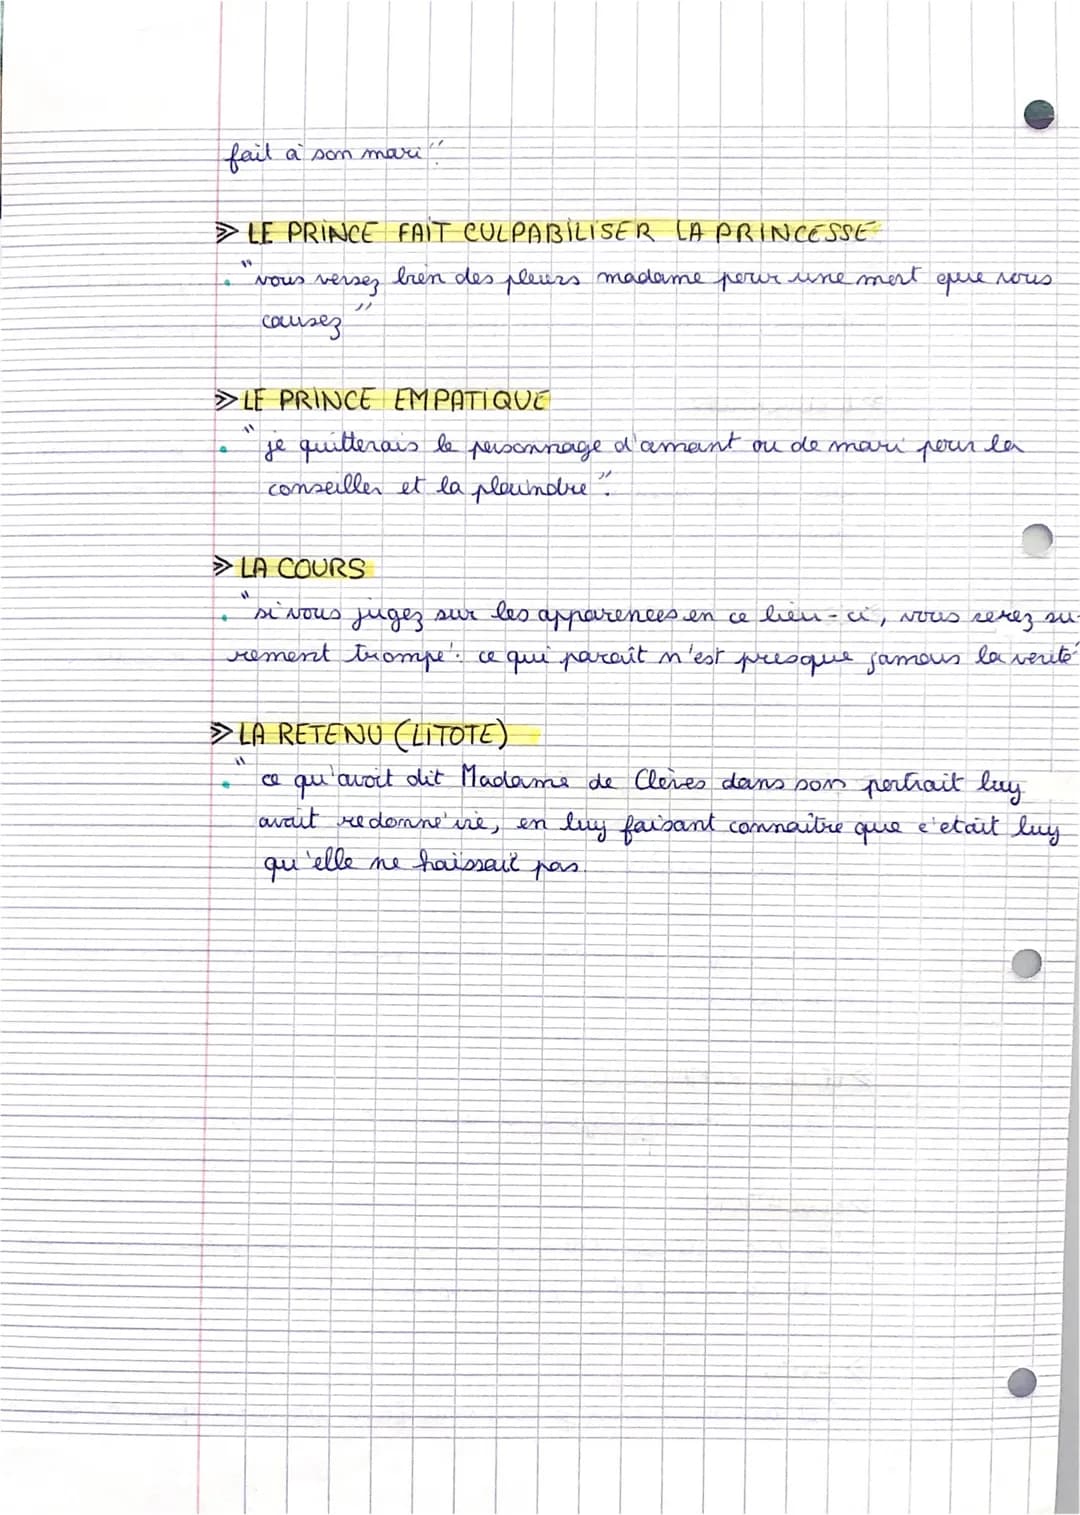 fait à son mari".
≫ LE PRINCE FAIT CULPABILISER LA PRINCESSE
• "vous versez bien des pleurs madame pour une mort que vous
causez"
≫ LE PRINCE EMPATIQUE
• "je quitterais le personnage d'amant ou de mari pour la
conseiller et la plaindre".
≫ LA COURS
• "si vous jugez sur les apparences en ce lieu-ci, vous serez su-
rement trompé: ce qui parait n'est presque jamais la verité
≫ LA RETENU (LITOTE)
• "ce qu'avoit dit Madame de Clèves dans son portrait luy
avait redonné vie, en luy faisant connaitre que c'etait luy
qu'elle ne haissait pas.